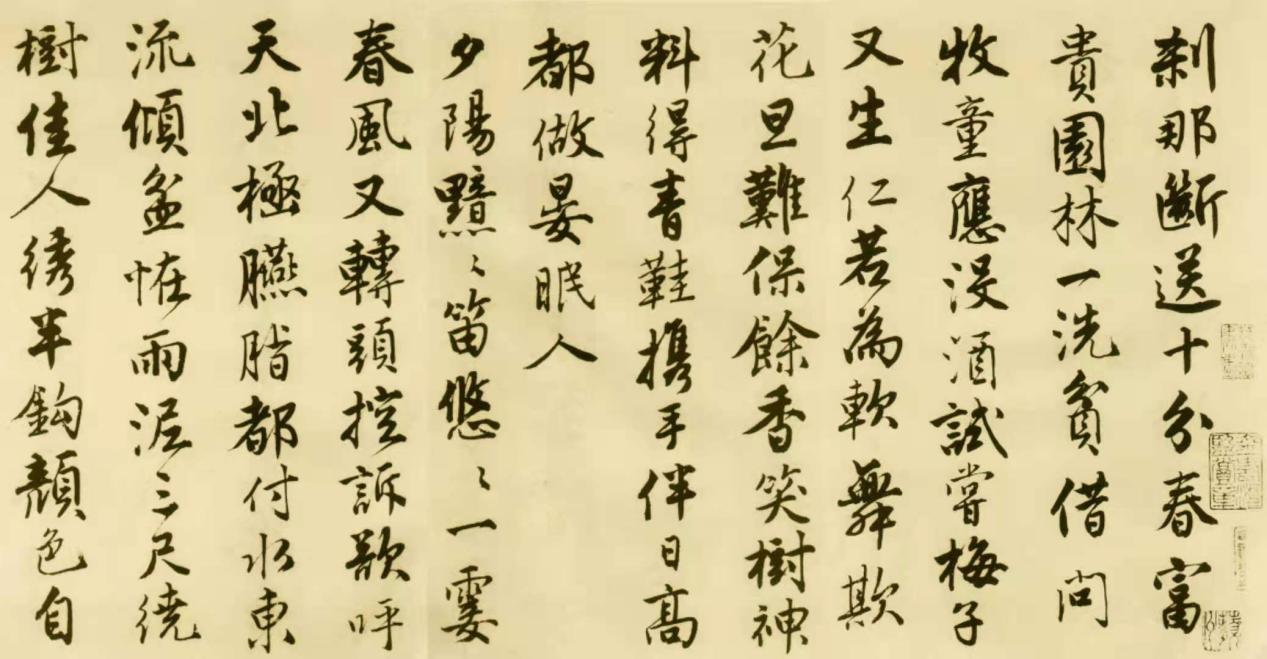 刹那斷送十分春富
貴園林一洗貧借問
牧童應没酒試嘗梅子
又生仁若為軟舞欺
花旦難保餘香笑樹神
料得青鞋携手伴日高
都做晏眠人
夕陽黯〻笛悠〻一霎
春風又轉頭控訴欲呼
天北極臙脂都付水東
流傾盆恠雨泥三尺繞
樹佳人綉半鈎顏色自